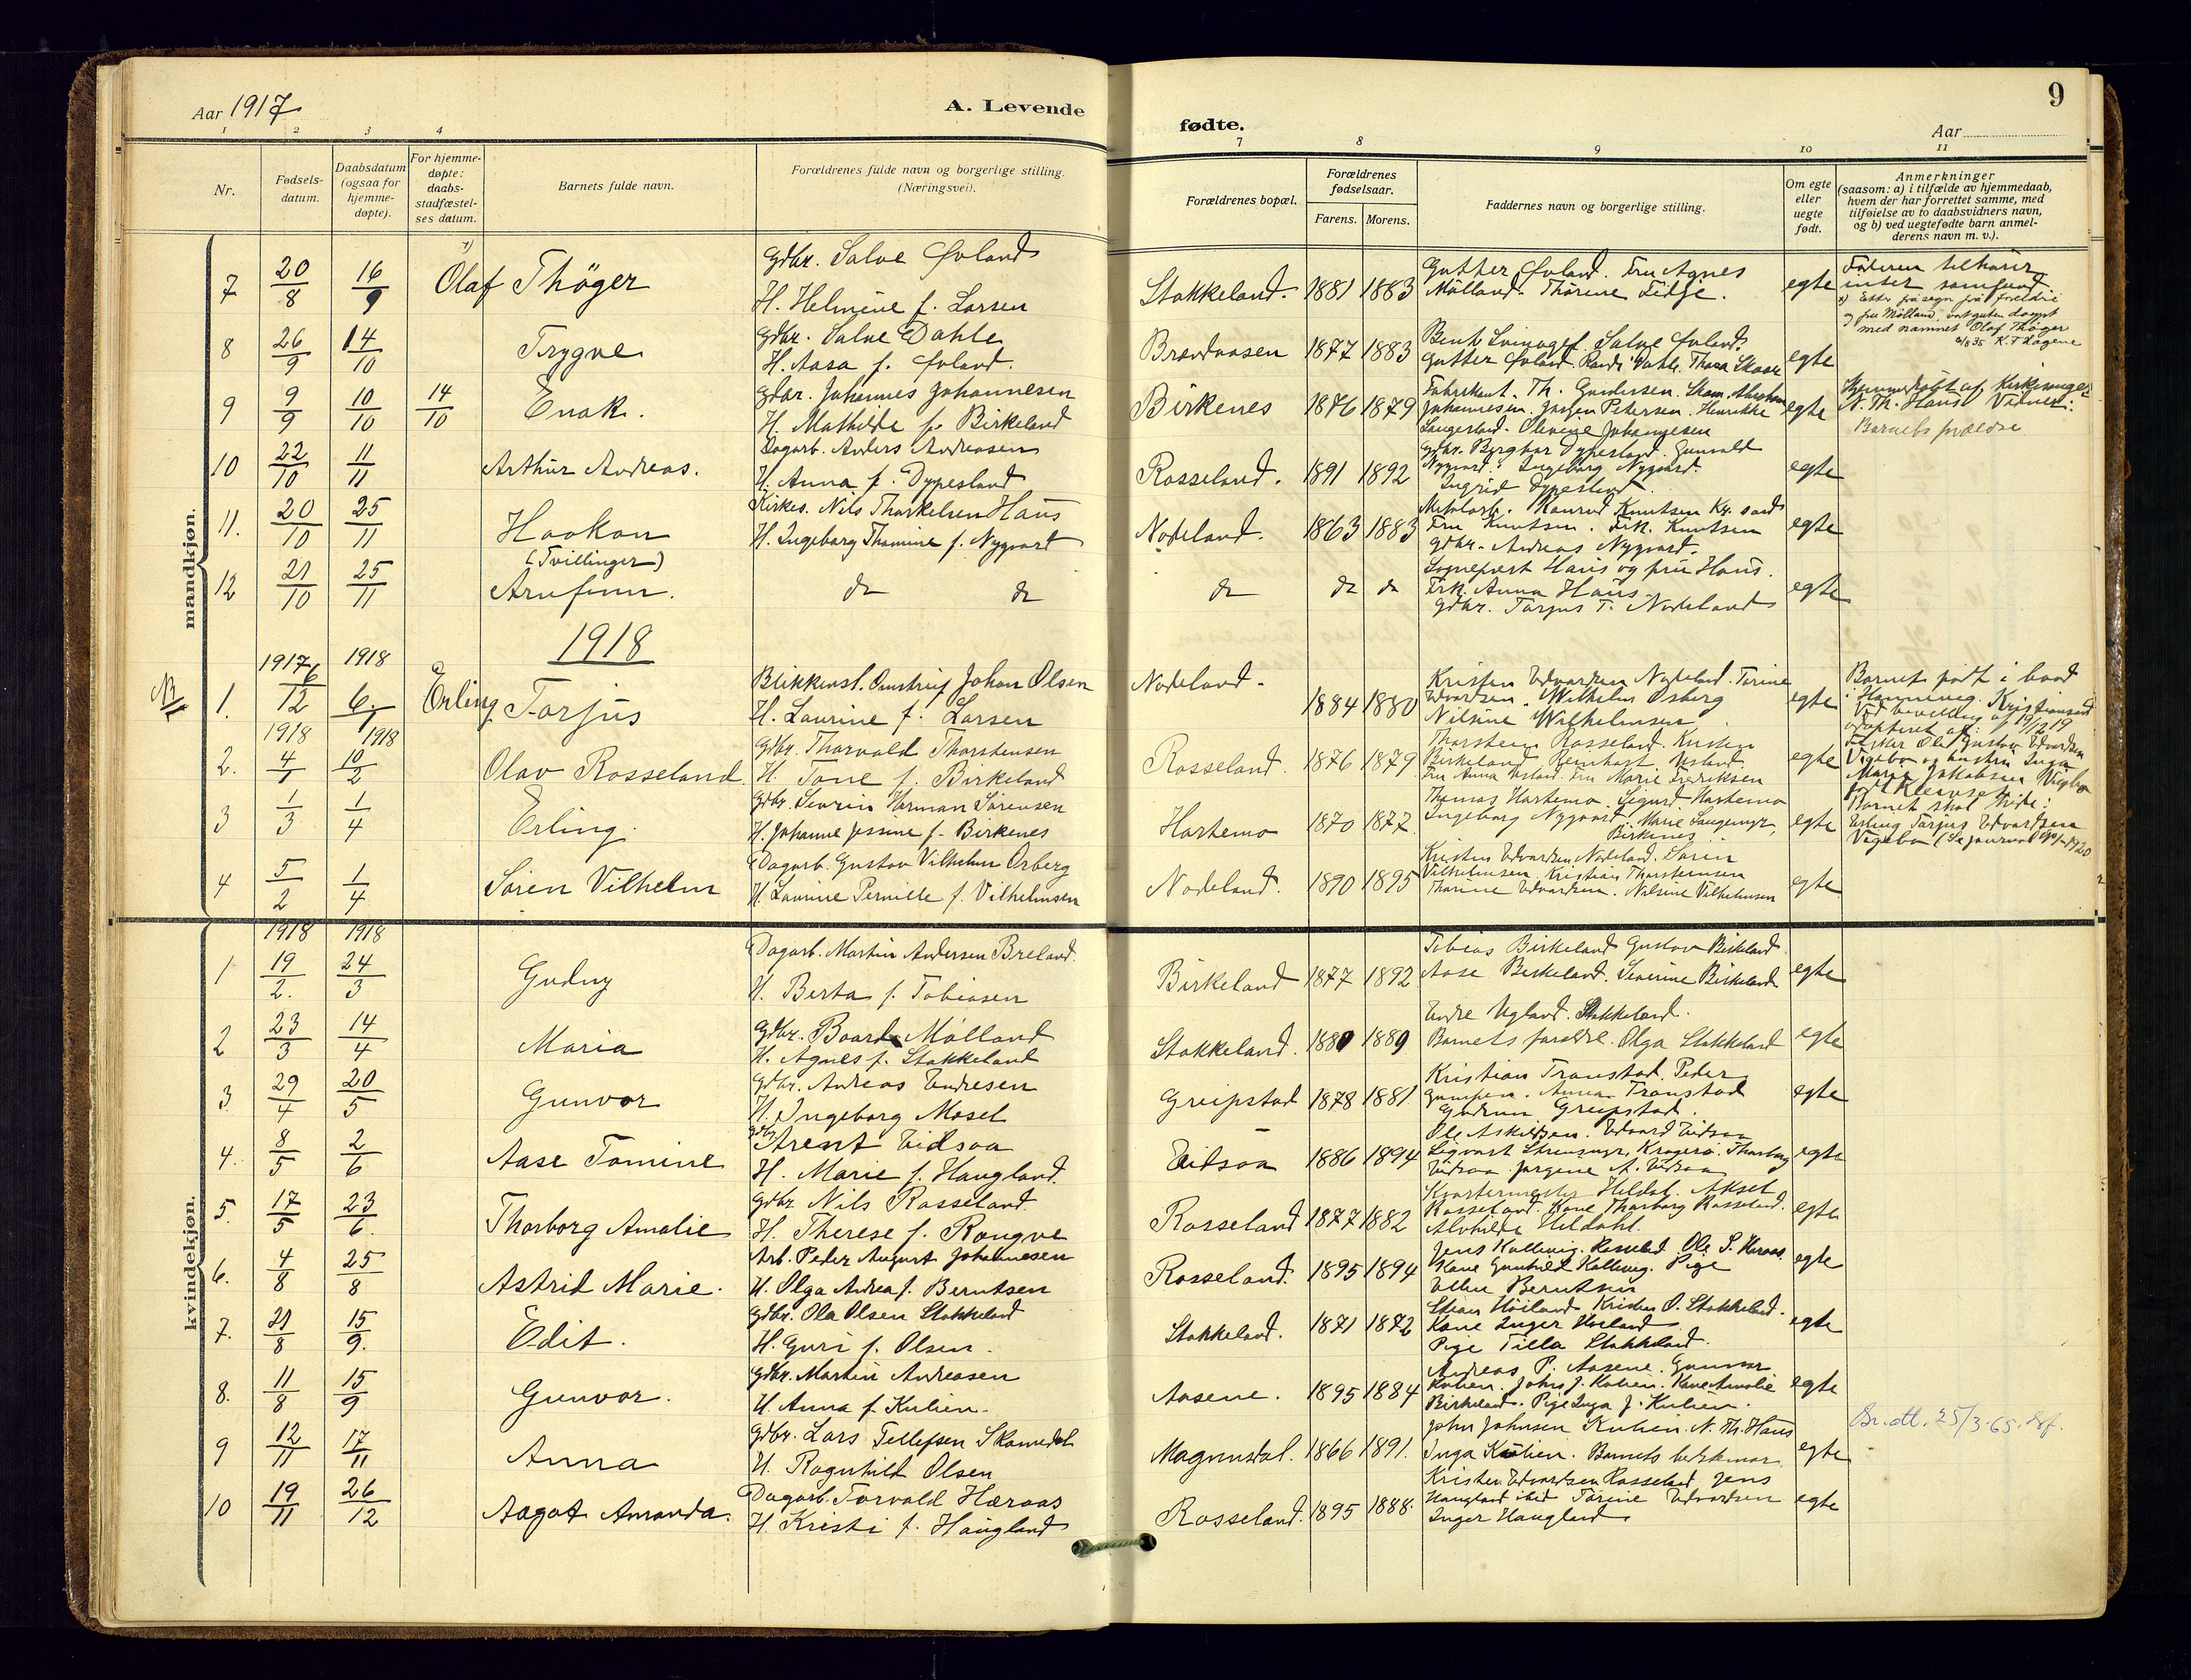 Aar 1917
A. Levende
fødte.
9
Aar
1 2 3 4
7 8 9 10 11
Nr.
Fødsels-
datum.
Daabsdatum
(ogsaa for
hjemme-
døpte).
For hjemme-
døpte:
daabs-
stadfæstel-
ses datum.
Barnets fulde navn.
Forældrenes fulde navn og borgerlige stilling.
(Næringsvei).
Forældrenes bopæl.
Forældrenes
fødselsaar.
Farens. Morens.
Faddernes navn og borgerlige stilling.
Om egte
eller
uegte
født.
Anmerkninger
(saasom: a) i tilfælde av hjemmedaab,
hvem der har forrettet samme, med
tilføielse av to daabsvidners navn,
og b) ved uegtefødte barn anmel-
derens navn m. v.).
mandkjøn.
7 20/8 16/9 Olaf Thøger
Gdbr. Salve Øvland
H. Helmine f. Larsen
Stokkeland. 1881 1883
Gutter Øvland. Fru Agnes
Mølland. Thorine Eidje.
egte
Faderen tilhører
intet samfund.
og fru Mølland vart guten døypt
med namnet Olaf Thøger
8 26/9 14/10 Trygve
Gdbr. Salve Dahle
H. Aasa f. Øvland.
1877 1883
Gutter Øvland. Dahle. Thora Skaar
egte
9 9/9 10/10 14/10 Enok.
Gdbr. Johannes Johannesen
H. Mathilde f. Birkeland
Birkenes 1876 1879
Fabrikant. Th. Gundersen.
Johannesen. Jørgen Petersen. Henrikke
Laugerland. Olevine Johannesen
egte
Hjemmedøbt af Kirkesanger
N. Th. Haus Vidner:
Barnets forældre
10 22/10 11/11 Arthur Andreas.
Dagarb. Anders Andreasen
H. Anna f. Dypesland
Rosseland. 1891 1892
Gdbr. Bergtvar Dypesland. Gunvald
Nygaard. Ingeborg Nygaard.
Ingrid Dypesland.
egte
11. 20/10 25/11 Haakon
Kirkes. Nils Thorkelsen Haus
H. Ingeborg Thomine f. Nygaard
Nodeland. 1863 1883
Konrad Knutsen Kr. sand
Fru Knutsen. Frk. Knutsen
Gdbr. Andreas Nygaard.
egte
(Tvillinger)
12 21/10 25/11 Arnfinn.
do do
do do do
Sogneprest Haus og fru Haus.
Frk. Anna Haus.
Gdbr. Tarjus T. Nodeland
egte
1918
1917 1918
NB
1. 6/12 6/1 Erling Torjus
Blikkensl. Johan Olsen
H. Laurine f. Larsen
Nodeland. 1884 1880
Kristen Edvardsen Nodeland. Torine
Edvardsen. Wilhelm Osberg
Nilsine Wilhelmsen
egte
Barnet født i baad
i Kristiansand
Ved bevilling af 19/12 19
adopteret af:
Fisker Ole Gustav Edvardsen
Vigebo og hustru Inga
Marie Jakobsen Vigebo
født Kleivset
Barnet skal hede:
Erling Torjus Edvardsen
Vigebo (Se journal 1920
1918 1918
2. 4/1 10/2 Olav Rosseland
Gdbr. Thorvald Thorstensen
H. Tone f. Birkeland
Rosseland. 1876 1879
Thorstein Rosseland. Kristen
Birkeland. Reinhart Usland.
Fru Anna Usland. Fru Marie Fredriksen
egte
3 1/3 1/4 Erling.
Gdbr. Severin Herman Sørensen
H. Johanne Jessine f. Birkenes
Hortemo 1870 1877
Thomas Hortemo. Sigurd Hortemo
Ingeborg Nygaard. Marie Langemyr,
Birkenes
egte
4 5/2 1/4 Søren Vilhelm
Dagarb. Gustav Vilhelm Osberg
H. Laurine Pernille f. Vilhelmsen
Nodeland. 1890 1895
Kristen Edvardsen Nodeland. Søren
Vilhelmsen. Kristian Thorsteinsen
Thorine Edvardsen. Nilsine Vilhelmsen
egte
kvindekjøn.
1918 1918
1 19/2. 24/3 Gudny
Dagarb. Martin Andersen Breland.
H. Berta f. Tobiasen
Birkeland 1877 1892
Tobias Birkeland Gustav Birkeland
Aase Birkeland. Severine Birkeland
egte
2 23/3 14/4 Maria
Gdbr. Baard Mølland
H. Agnes f. Stokkeland
Stokkeland. 1880 1889
Endre Usland. Stokkeland.
Barnets forældre. Olga Stokkeland
egte
3 29/4 20/5 Gunvor
Gdbr. Andreas Endresen
H. Ingeborg Mosel
Greipstad 1878 1881
Kristian Tronstad. Peder
Anna Tronstad
Gudrun Greipstad.
egte
4. 8/5 2/6 Aase Tomine
Gdbr. Arent Eidsaa
H. Marie f. Haugland.
Eidsaa 1886 1894
Ole Askildsen. Edvard Eidsaa
Sigvart Strensmyr, Kragerø. Thorborg
Eidsaa Jørgine A. Eidsaa
egte
5. 17/5 23/6. Thorborg Amalie
Gdbr Nils Rosseland
H. Therese f. Rongve
Rosseland 1877 1882
Kvartermester Heldal. Aksel
Rosseland. Kone Thorborg Rosseland.
Alvhilde Heldahl.
egte
6. 4/8 25/8 Astrid Marie.
Arb. Peder August Johannesen
H. Olga Andrea f. Berntsen
Rosseland. 1895 1894
Jens Kallevig. Rosseland. Ole S. Heraas.
Kone Gunhild Kallevig. Pige
Ellen Berntsen
egte
7. 21/8 15/9. Edit.
Gdbr. Ola Olsen Stokkeland
H. Guri f. Olsen.
Stokkeland. 1871 1872
Stian Høiland. Kristen O. Stokkeland.
Kone Inger Høiland
Pige Tilla Stokkeland.
egte
8. 11/8 15/9 Gunvor.
Gdbr. Martin Andreasen
H. Anna f. Kulien.
Aasene. 1895 1884
Andreas P. Aasene. Gunnar
Kulien. John J. Kulien. Kone Amalie
Birkeland. Pige Inga J. Kulien.
egte
9 12/11 17/11 Anna
Gdbr. Lars Tellefsen Skomedal
H. Ragnhild Olsen
Magnusdal. 1866 1891.
John Johnsen Kulien. N. Th. Haus
Inga Kulien. Barnets bedstemor
egte
25/3-65.
10 19/11 26/12 Aagot Amanda.
Dagarb. Torvald Heraas
H. Kristi f. Haugland
Rosseland. 1895 1888.
Kristen Edvardsen Rosseland. Jens
Haugland ibid Torine Edvardsen
Inger Haugland
egte